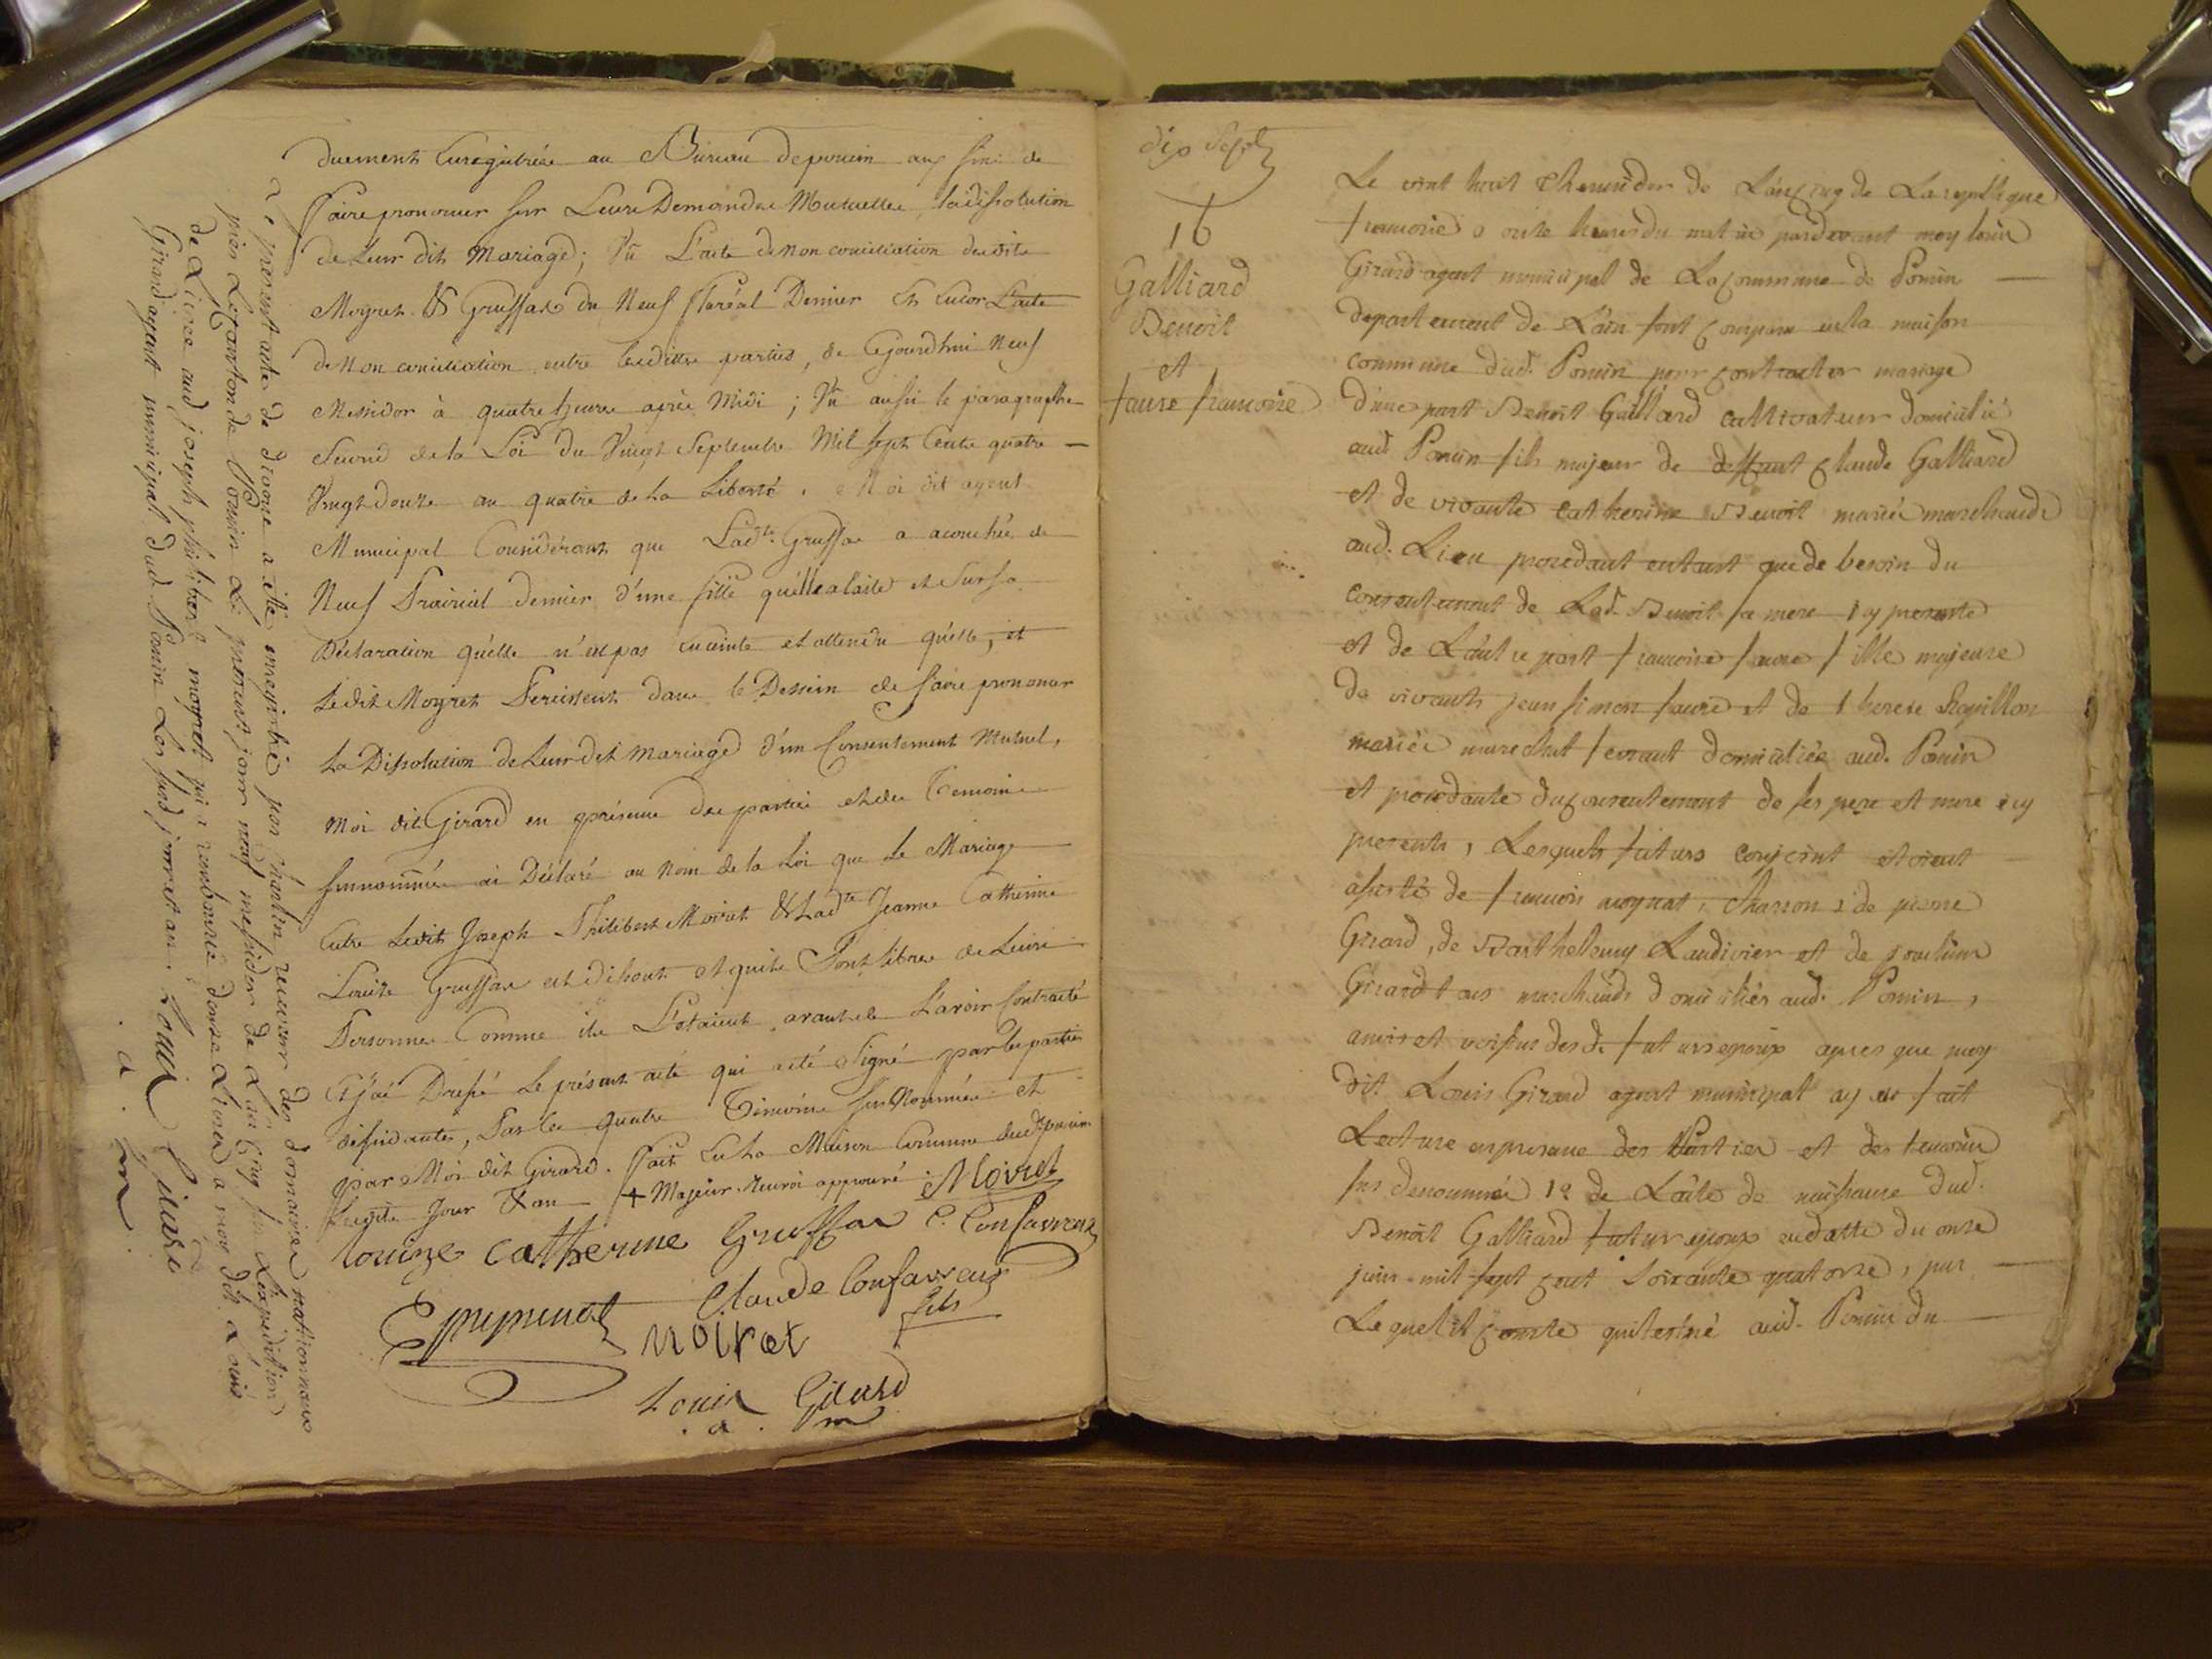 duement Enregistrée au Bureau de poncin aux fins de
faire prononcer sur Leurs Demandes Mutuelles, la dissolution
de Leur dit Mariage; Vû L'acte de non conciliation desdits
Moyret & Gruffas du Neuf floréal Dernier Et Encor L'acte
de Non conciliation entre lesdittes parties, de Cejourdhui Neuf
Messidor à quatre heures après Midi; Vû aussi le paragraphe
second de la Loi du Vingt Septembre Mil sept Cents quatre
Vingt douze au quatre de la Liberté. Moi dit agent
Municipal Considérant que Ladte. Gruffas a acouchée de
Neuf Prairial dernier d'une fille qu'elle alaite et sur sa
Déclaration qu'elle n'est pas enceinte et attendu qu'elle, et
Ledit Moyret Persistent dans le Dessein de faire prononcer
La Dissolution de Leur dit Mariage d'un Consentement Mutuel,
Moi dit Girard en présence des parties et des Temoins
surnommés ai Déclaré au Nom de la Loi que Le Mariage
Entre Ledit Joseph Philibert Moiret & Ladte Jeanne Catherine
Louise Gruffas est dissout et quils Sont libres de Leurs
Personnes Comme ils L'etaient avant de L'avoir Contracté
Et j'ai Dressé Le présent acte qui a eté Signé par les parties
, Par les quatre Témoins sus Nommés et
par Moi dit Girard. fait En La Maison Commune dudt poncin
Lesdits Jour & an + Majeur approuvé Moiret
louize catherine Gruffas C. Confavreux
Claude Confavreux
fils
Moiret
Louis Girard
. a . m
Le present acte de divorce a été enregistré par receveur des domaines nationnaux
près Le Canton de Poncin Le present jour neuf messidor de L'an Cinq sur L'expedition
de Livree aud joseph philibert moyret qui a remboursé douze Livres a moy dit Louis
Girard agent municipal dud. Poncin Les susd jour et an. Louis Girard
. a . m
dix Sept
16
Galliard
Benoit
et
faure francoise
Le vint huit Thermidor de L'an cinq de La republique
francoise a onze heures du matin pardevant moy louis
Girard agent municipal de La Commune de Poncin
departement de L'ain sont comparu en la maison
commune dud. Poncin pour contracter mariage
d'une part Benoit Galliard cultivateur domicilié
aud Poncin fils majeur de deffunt Claude Galliard
et de vivante Catherine Benoit mariés marchands
aud. Lieu procedant en tant que de besoin du
consentement de Lad. Benoit sa mere icy presente
et de L'autre part francoise faure fille majeure
de vivants jean simon faure et de therese
mariés marechal ferrant domiciliés aud. Poncin
et procedante du consentement de ses pere et mere icy
presents, Lesquels futurs conjoint etoient
assisté de francois moynat, charron, de pierre
Girard, de Barthelemy Laudivier et de joachim
Girard tous marchands domiciliés aud. Poncin,
amis et voisins desd. futurs epoux apres que moy
dit Louis Girard agent municipal ay eu fait
Lecture en presence des Parties et des temoins
sus denommés 1º de L'acte de naissance dud.
Benoit Galliard futur epoux en datte du onze
juin mil sept cent soixante quatorze, par
Lequel il conste quil est né aud. Poncin du